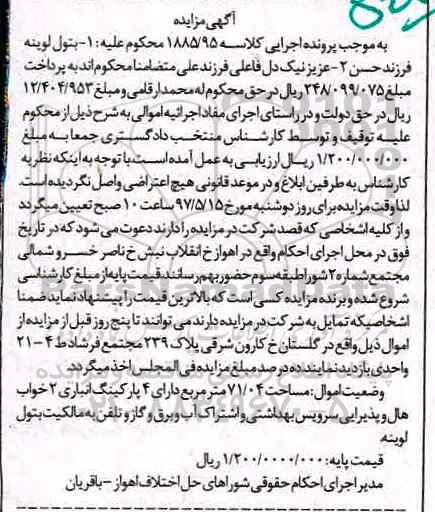 آگهی مزایده
به موجب پرونده اجرایی کلاسه ۱۸۸۵/۹۵ محکوم علیه: ۱- بتول لوینه
فرزند حسن ۲- عزیز نیک دل فاعلی فرزند علی متضامنا محکوم اند به پرداخت
مبلغ ۲۴۸/۰۹۹/۰۷۵ ریال در حق محکوم له محمد ارقامی و مبلغ ۱۲/۴۰۴/۹۵۳
ریال در حق دولت و در راستای اجرای مفاد اجرائیه اموالی به شرح ذیل از محکوم
علیه توقیف و توسط کارشناس منتخب دادگستری جمعا به مبلغ
۱/۲۰۰/۰۰۰/۰۰۰ ریال ارزیابی به عمل آمده است، با توجه به اینکه نظریه
کارشناس به طرفین ابلاغ و در موعد قانونی هیچ اعتراضی واصل نگردیده است.
لذا وقت مزایده برای روز دوشنبه مورخ ۹۷/۵/۱۵ ساعت ۱۰ صبح تعیین میگردد
و از کلیه اشخاصی که قصد شرکت در مزایده را دارند دعوت می شود که در تاریخ
فوق در محل اجرای احکام واقع در اهواز خ انقلاب نبش خ ناصر خسرو شمالی
مجتمع شماره ۲ شورا طبقه سوم حضور بهم رسانند. قیمت پایه از مبلغ کارشناسی
شروع شده و برنده مزایده کسی است که بالاترین قیمت را پیشنهاد نماید ضمنا
اشخاصیکه تمایل به شرکت در مزایده دارند می توانند تا پنج روز قبل از مزایده از
اموال ذیل واقع در گلستان خ کارون شرقی پلاک ۲۳۹ مجتمع فرشاد ط ۴ - ۲۱
واحدی بازدید نمایند ده درصد مبلغ مزایده فی المجلس اخذ میگردد.
وضعیت اموال: مساحت ۷۱/۰۴ متر مربع دارای ۴ پارکینگ انباری ۲ خواب
هال و پذیرایی سرویس بهداشتی و اشتراک آب و برق و گاز و تلفن به مالکیت بتول
لوینه.
قیمت پایه: ۱/۲۰۰/۰۰۰۰/۰۰۰ ریال
مدیر اجرای احکام حقوقی شوراهای حل اختلاف اهواز - باقریان
ParsNamadData